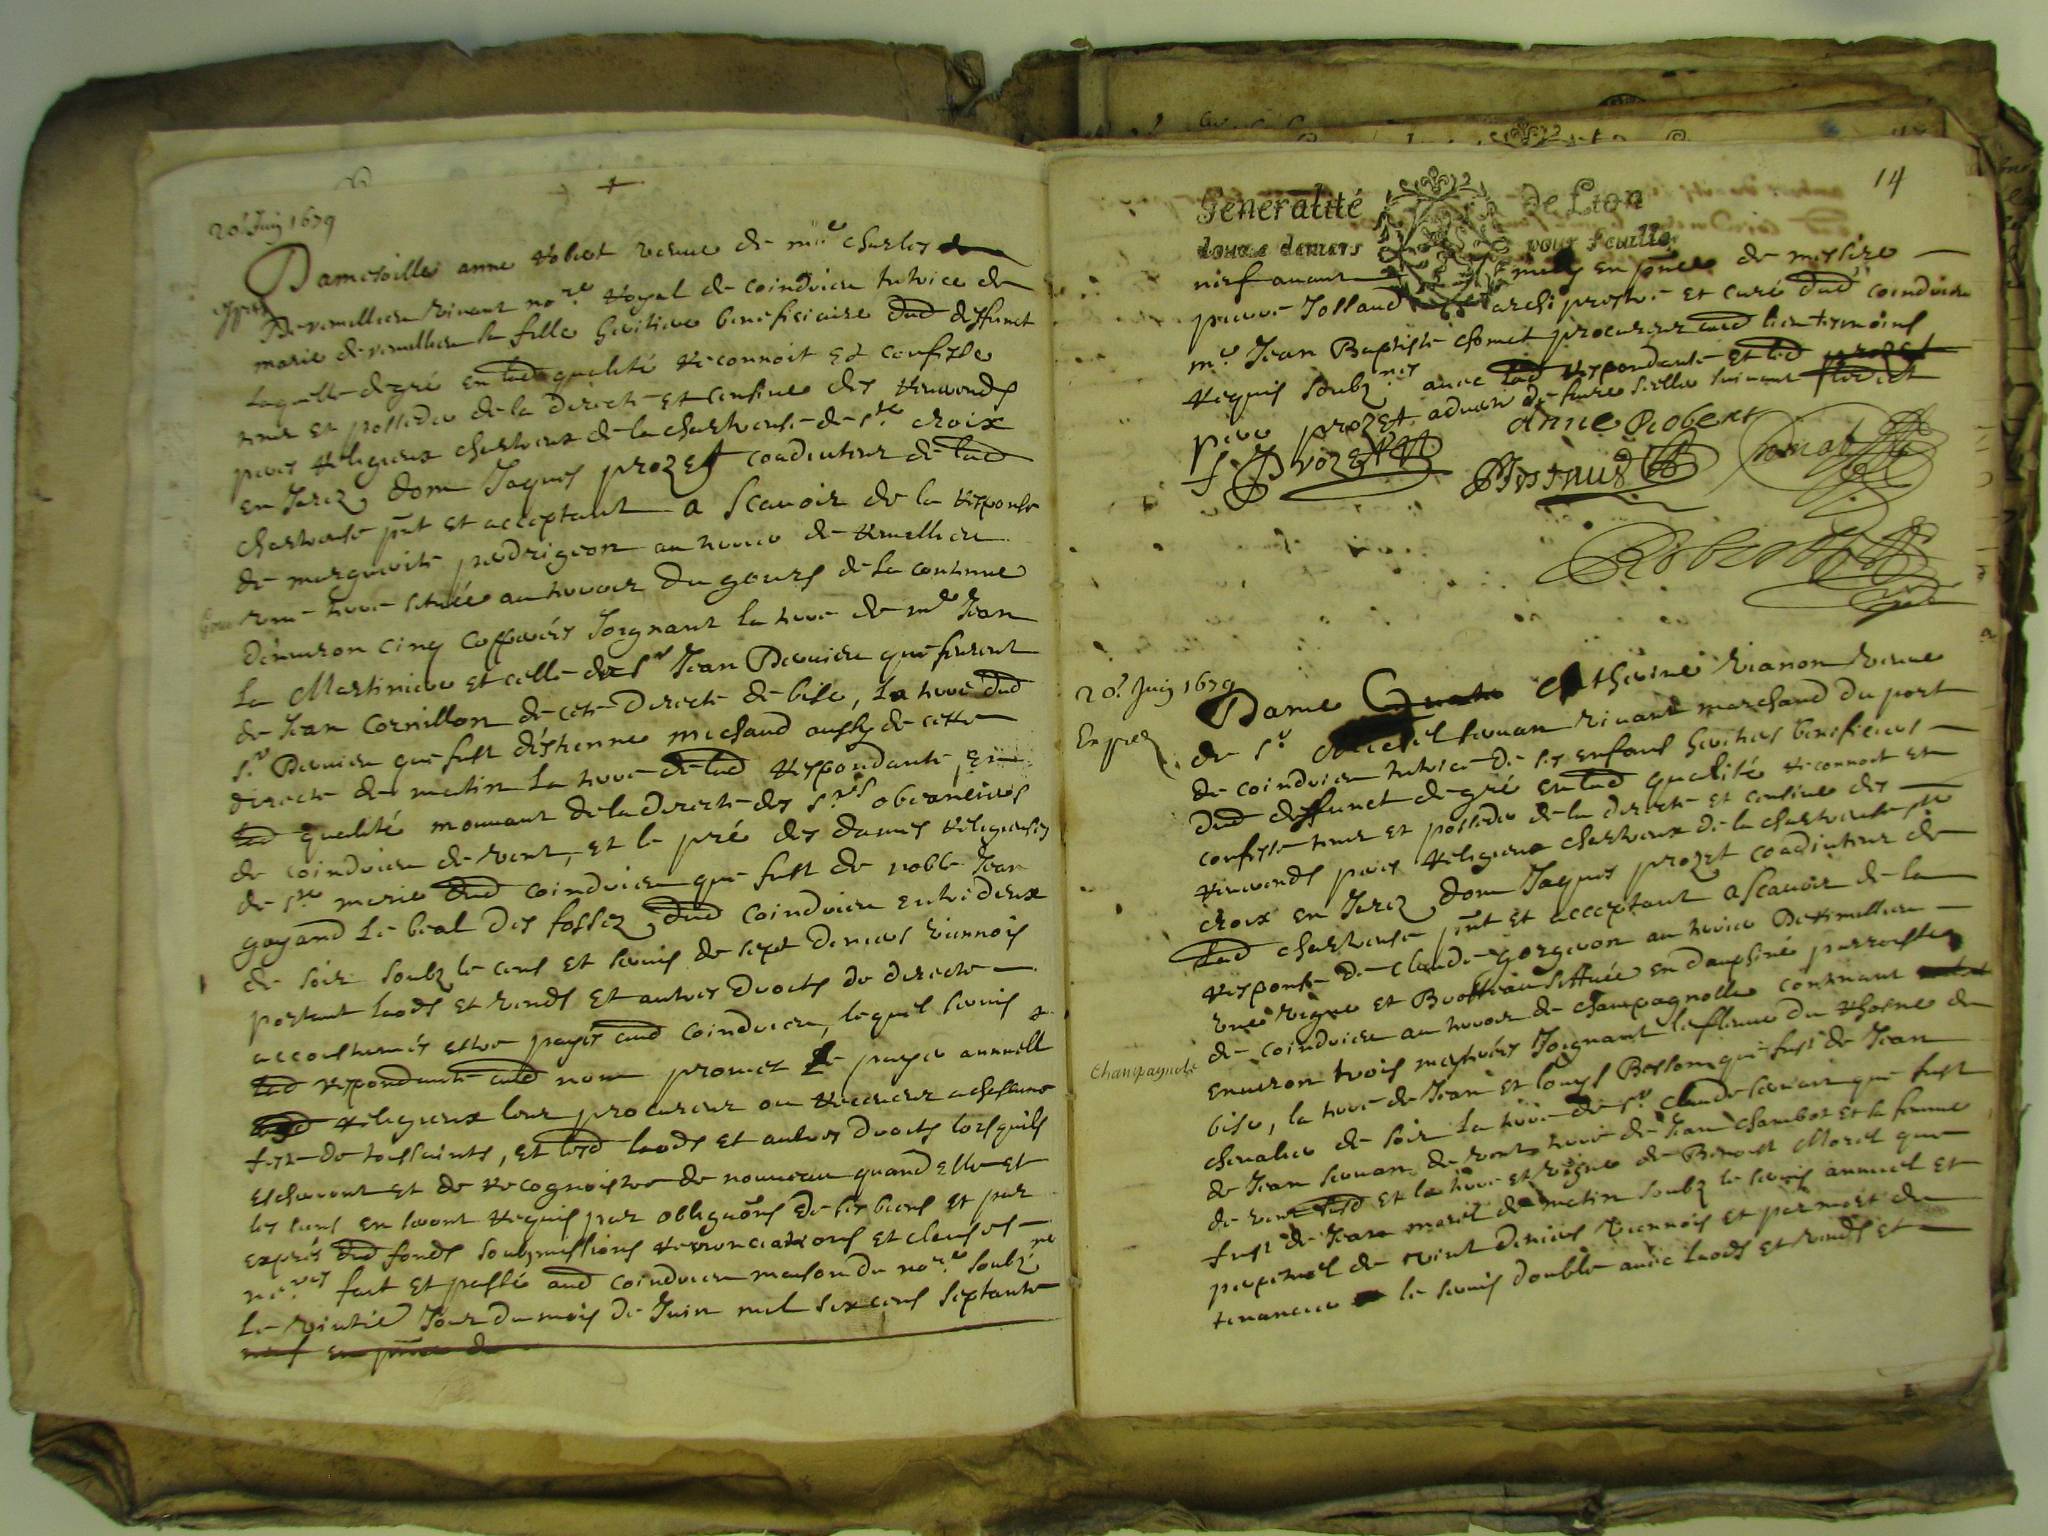 20.e Juin 1679
Damoiselle anne Robert vefve de m.re charles
De remillieu vivant no.re Royal de coindrieu tutrice de
exped
marie de remillieu sa fille heritiere beneficiaire dud deffunct
Laquelle de gré en lad qualité reconnoit et confesse
tenir et posseder de la directe et censive des Reverends
peres Religieux chartreux de la chartreuse de s.te croix
en Jarez dom Jaques prozet coadiuteur de lad
chartreuse pnt et acceptant a scavoir de la responce
de marguerite au terrier de
une terre située au terroir du gours de la contenue
d'environ cinq Joignant la terre de m.e Jean
La Martiniere et celle de s.r Jean Dervieu que furent
de Jean Cornillon de cete directe de bise, La terre dud
s.r Dervieu que fust d'estienne michaud aussy de cette
directe de matin La terre de lad respondante, en
lad qualité mouvant de la directe des s.rs obeanciers
de coindrieu de vent, et le pré des dames religieuses
de s.te marie dud coindrieu que fust de noble Jean
gayand le beal des fossez dud coindrieu entredeux
de soir soubz le cens et servis de sept deniers viennois
portant laods et vends et autres droits de directe
accoustumés estre payés aud coindrieu, lequel servis
lad respondante aud nom promet de payer annuell
ausd religieux leur procureur ou receveur a chascune
feste de toussaints, et lesd laods et autres droits lors quils
escherront et de recognoistre de nouveau quand elle et
les siens en seront requis par obliga.ons de ses biens et par
exprés dud fonds soubzmissions renonciations et clauses
ne.res fait et passé aud coindrieu maison du no.re soubz.né
Le vintie Jour du mois de Juin mil six cens septante
neuf en pnce de
14
Generalité de Lion
douze deniers pour feuille
neuf avant en pnce de messire
pierre Jolland archi prestre et curé dud coindrieu
m.e Jean Baptiste chomet procureur aud lieu tesmoins
requis soubz.nés avec lad respondante et led prozet
prozet adverti de faire seeller suivant l'edict
f. J Prozet Anne Robert
Robert
20.e Juin 1679
Dame Catherine vianon vefve
Exped
de s.r servan vivant marchand du port
de coindrieu tutrice de ses enfans heritiers beneficiers
dud deffunct de gré en lad qualité reconnoit et
confesse tenir et posseder de la directe et censive des
reverends peres religieux chartreux de la chartreuse s.te
croix en Jarez dom Jaques prozet coadiuteur de
lad chartreuse pnt et acceptant a scavoir de la
responce de claude gorgeron au terrier
Une vigne et Brotteau sittuée en dauphiné parroisse
de coindrieu au terroir de champagnolle contenant
Champagnole
environ trois Joignant le fleuve du Rhosne de
bise, la terre de Jean et louys Besson que fust de Jean
chevalier de soir La terre de s.r claude servan que fust
de Jean servan de vent terre de Jean chambon et sa femme
de vent aussy et la terre et vigne de Benoist Morel que
fust de Jean morel de matin soubz le servis annuel et
perpetuel de vint deniers viennois et par mort de
tenancier le servis double avec laods et vends et